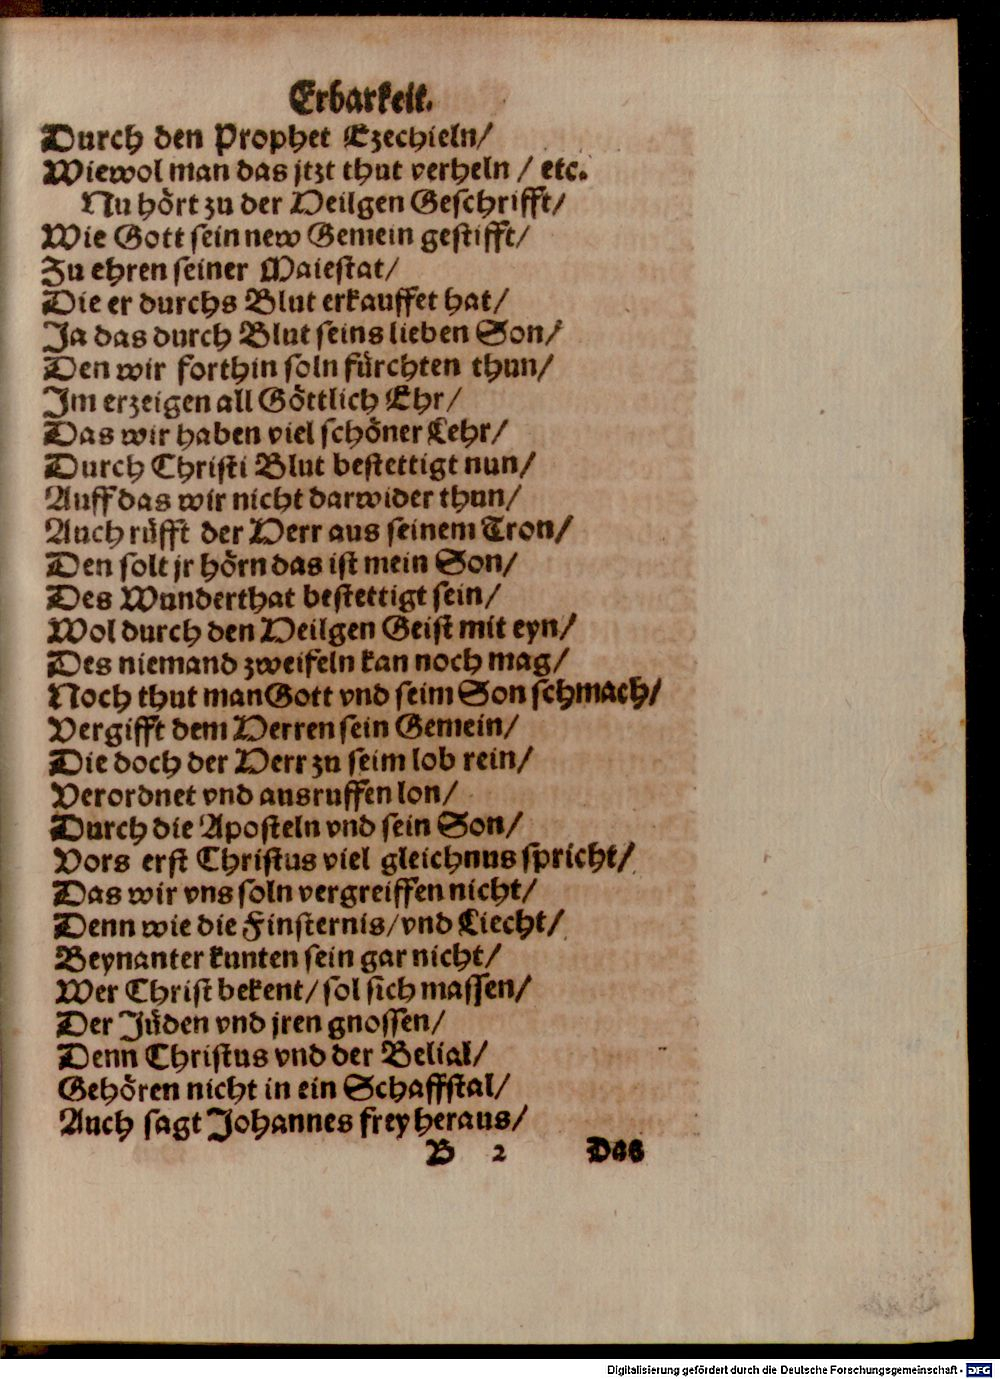 Erbarkeit.
Durch den Prophet Ezechieln/
Wiewol man das jtzt thut verheln / etc.
Nu hört zu der Heilgen Geschrifft/
Wie Gott sein new Gemein gestifft/
Zu ehren seiner Maiestat/
Die er durchs Blut erkauffet hat/
Ja das durch Blut seins lieben Son/
Den wir forthin soln fürchten thun/
Im erzeigen all Göttlich Ehr/
Das wir haben viel schöner Lehr/
Durch Christi Blut bestettigt nun/
Auff das wir nicht darwider thun/
Auch rüfft der Herr aus seinem Tron/
Den solt jr hörn das ist mein Son/
Des Wunderthat bestettigt sein/
Wol durch den Heilgen Geist mit eyn/
Des niemand zweifeln kan noch mag/
Noch thut man Gott vnd seim Son schmach/
Vergifft dem Herren sein Gemein/
Die doch der Herr zu seim lob rein/
Verordnet vnd ausruffen lon/
Durch die Aposteln vnd sein Son/
Vors erst Christus viel gleichnus spricht/
Das wir vns soln vergreiffen nicht/
Denn wie die Finsternis/ vnd Liecht/
Beynanter kunten sein gar nicht/
Wer Christ bekent/ sol sich massen/
Der Jüden vnd jren gnossen/
Denn Christus vnd der Belial/
Gehören nicht in ein Schaffstal/
Auch sagt Johannes frey heraus/
B 2 Das
Digitalisierung gefördert durch die Deutsche Forschungsgemeinschaft - DFG